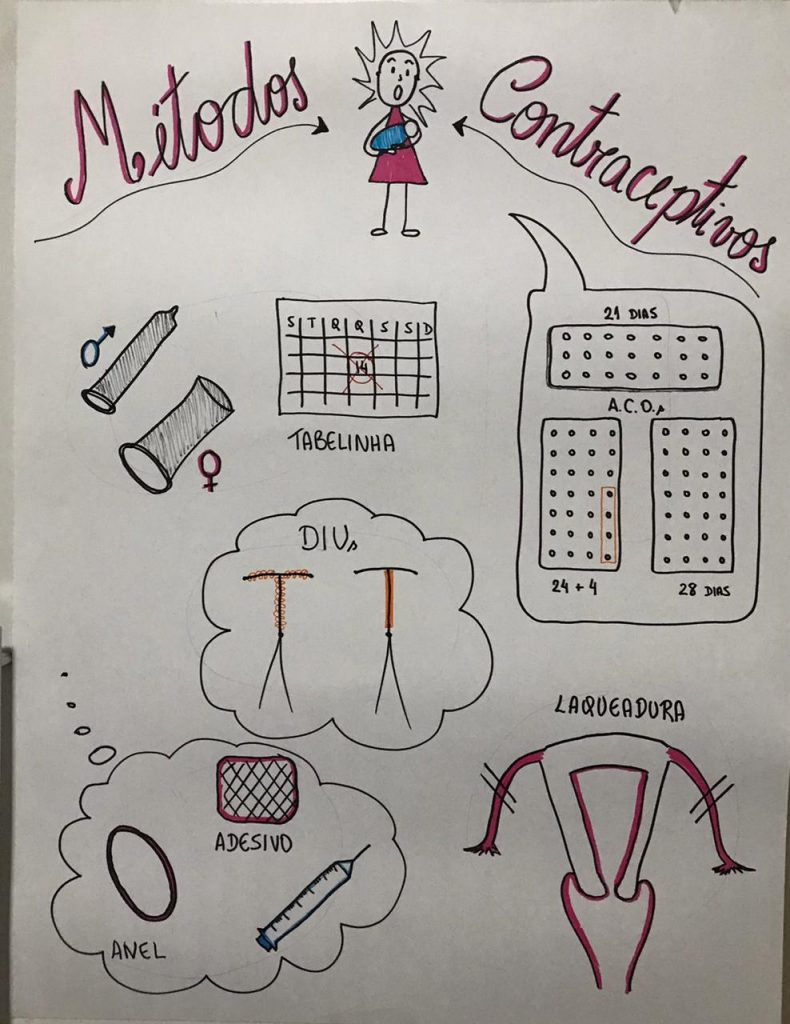 Métodos
Contraceptivos
♂
♀
S T Q Q S S D
14
TABELINHA
21 DIAS
A.C.O.s
24 + 4
28 DIAS
DIUs
LAQUEADURA
ADESIVO
ANEL